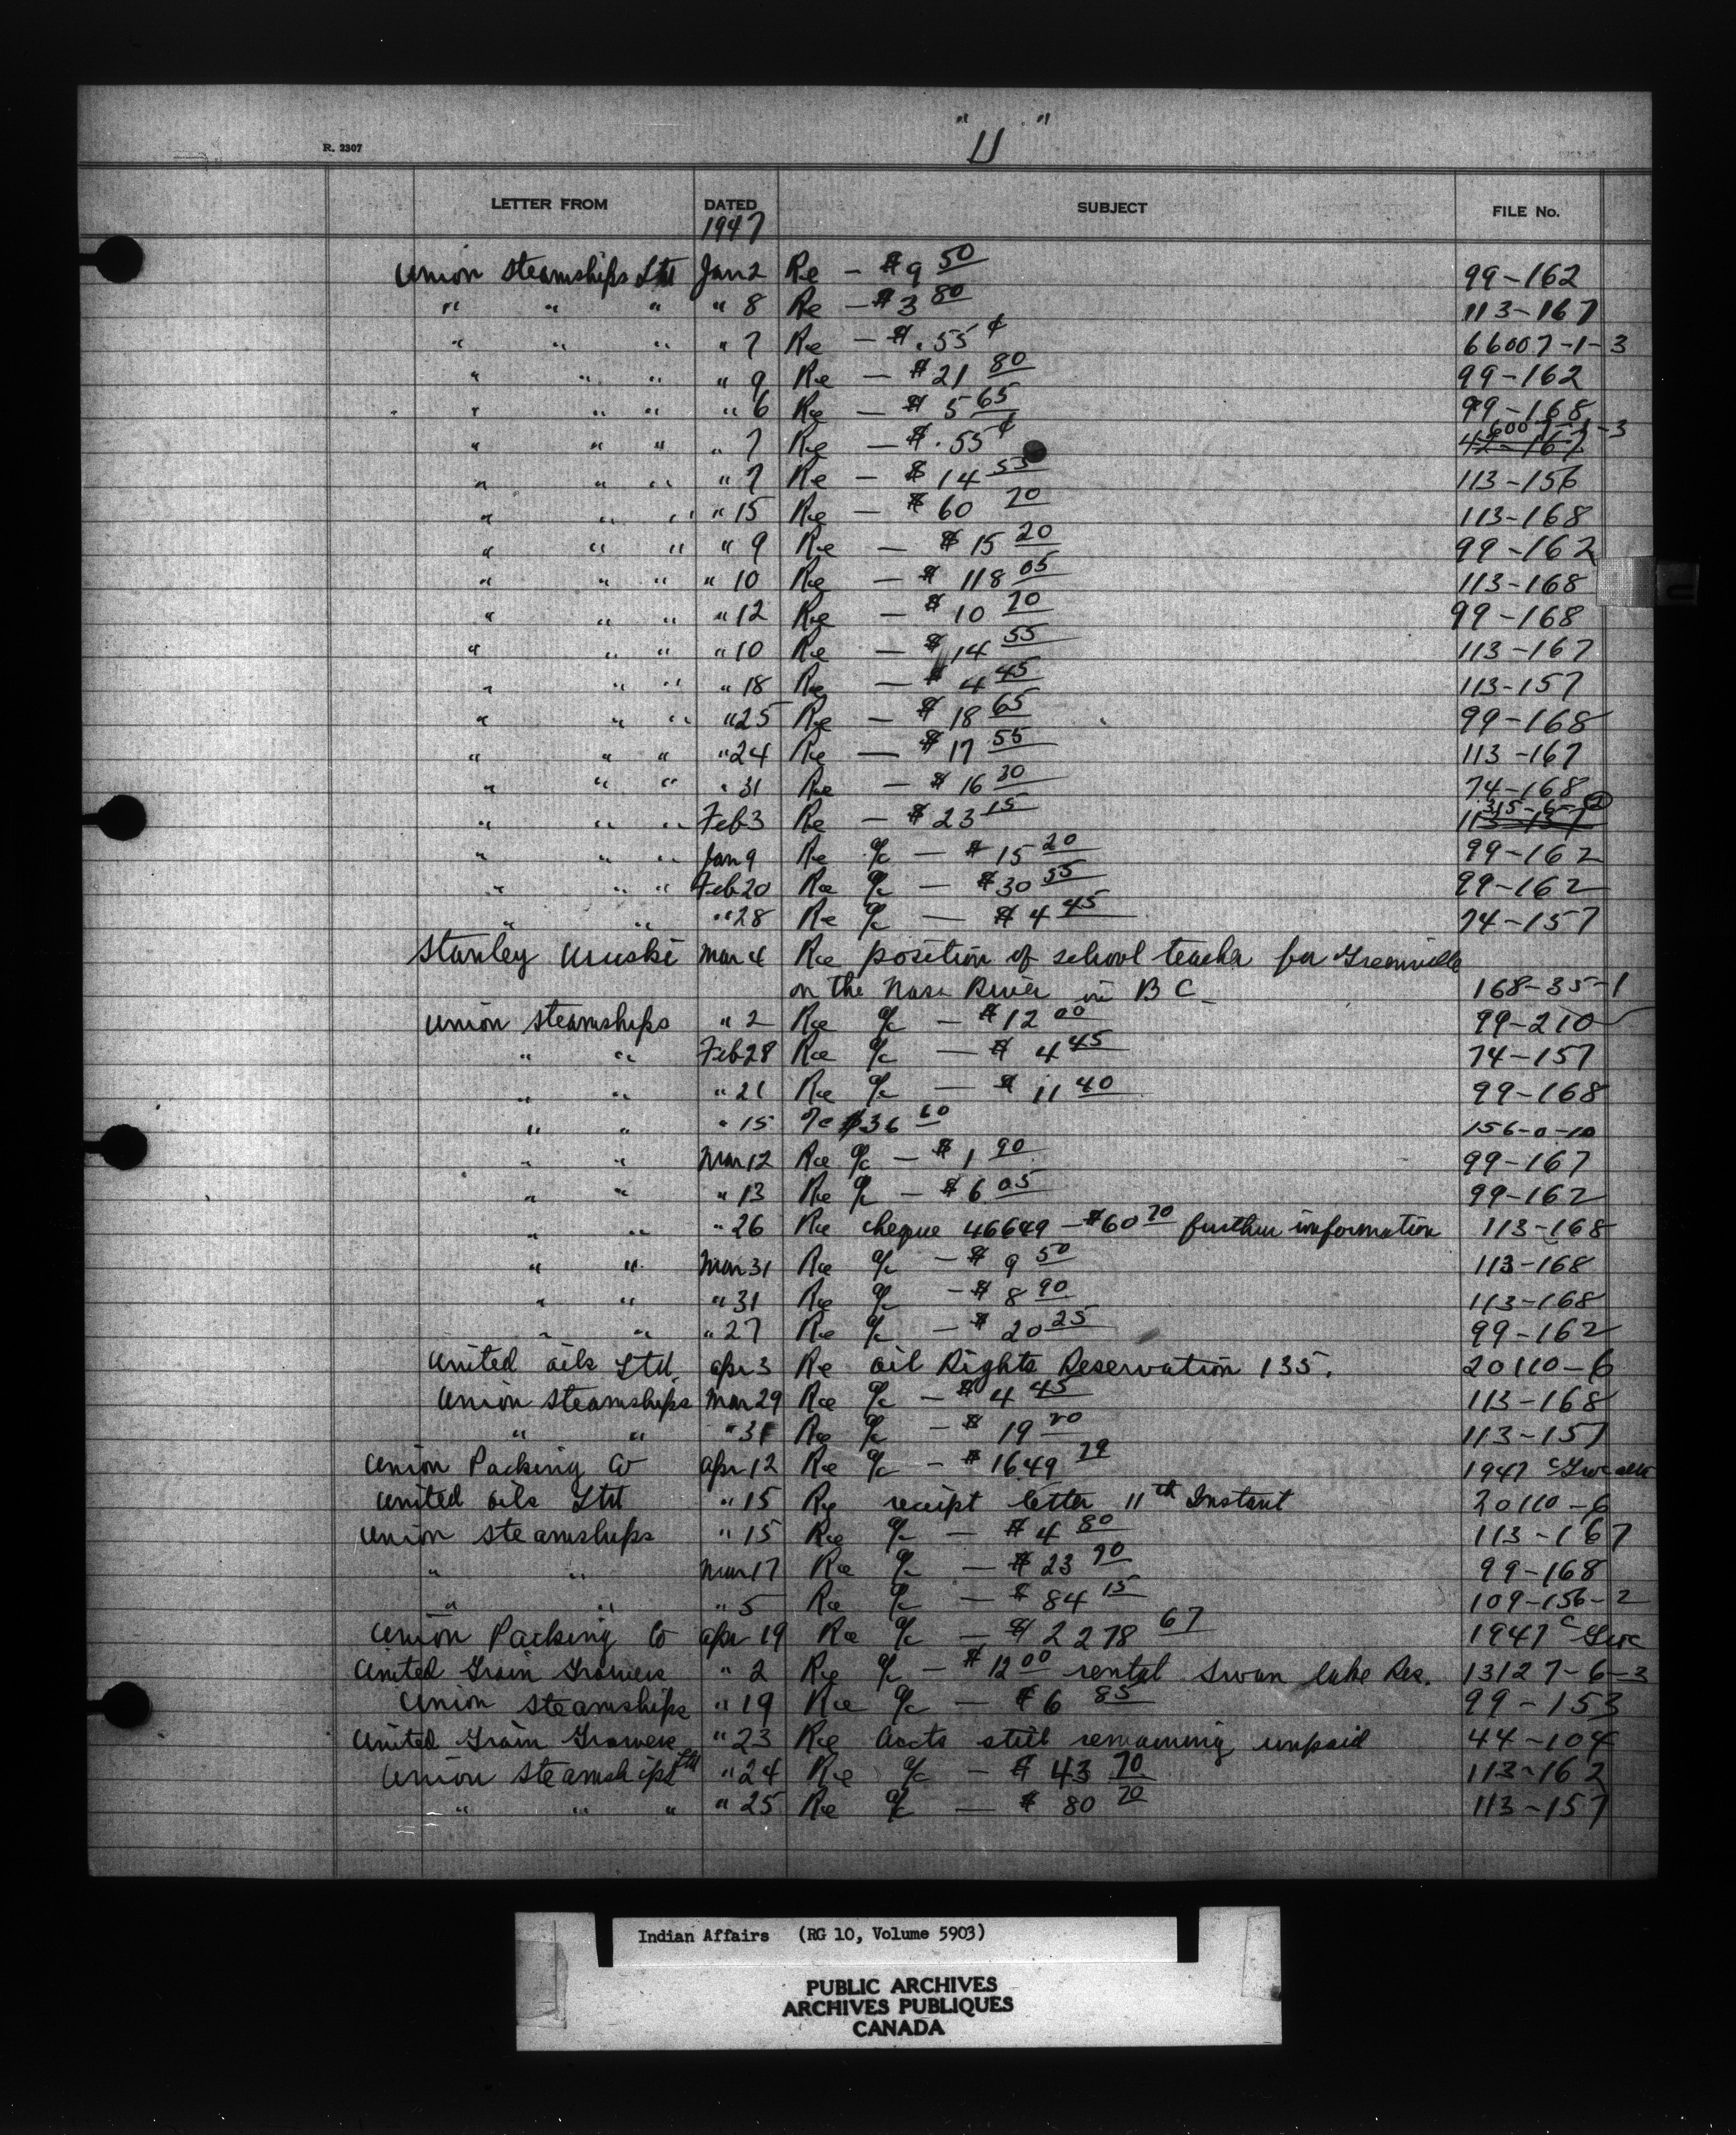 "U"
R. 2307
LETTER FROM DATED SUBJECT FILE No.
1947
Union Steamships Ltd Jan 2 Re - $9 50 99-162
" " " " 8 Re - $3 80 113-167
" " " " 7 Re - $.55¢ 66007-1-3
" " " " 9 Re - $21 80 99-162
" " " " 6 Re - $5 65 99-168
" " " " 7 Re - $.55¢ 42-167 6007-1-3
" " " " 7 Re - $14 55 113-156
" " " " 15 Re - $60 70 113-168
" " " " 9 Re - $15 20 99-162
" " " " 10 Re - $118 05 113-168
" " " " 12 Re - $10 70 99-168
" " " " 10 Re - $14 55 113-167
" " " " 18 Re - $4 45 113-157
" " " " 25 Re - $18 65 99-168
" " " " 24 Re - $17 55 113-167
" " " " 31 Re - $16 30 74-168
" " " Feb 3 Re - $23 15 113-157 315-6-2
" " " Jan 9 Re a/c - $15 20 99-162
" " " Feb 20 Re a/c - $30 55 99-162
" " " 28 Re a/c - $4 45 74-157
Stanley Uruski Mar 4 Re position of school teacher for Greenville
on the Nass River in B C 168-35-1
Union Steamships " 2 Re a/c - $12 00 99-210
" " Feb 28 Re a/c - $4 45 74-157
" " " 21 Re a/c - $11 40 99-168
" " " 15 a/c $36 60 156-0-10
" " Mar 12 Re a/c - $1 90 99-167
" " " 13 Re a/c - $6 05 99-162
" " " 26 Re cheque 46649 - $60 70 further information 113-168
" " Mar 31 Re a/c - $9 50 113-168
" " " 31 Re a/c - $8 90 113-168
" " " 27 Re a/c - $20 25 99-162
United Oils Ltd. Apr 3 Re Oil Rights Reservation 135. 20110-6
Union Steamships Mar 29 Re a/c - $4 45 113-168
" " " 31 Re a/c - $19 20 113-157
Union Packing Co Apr 12 Re a/c - $1649 79 1947
United Oils Ltd " 15 Re receipt letter 11th Instant 20110-6
Union Steamships " 15 Re a/c - $4 80 113-167
" " Mar 17 Re a/c - $23 90 99-168
" " " 5 Re a/c - $84 15 109-156-2
Union Packing Co Apr 19 Re a/c - $2278 67 1947
United Grain Growers " 2 Re a/c - $12 00 rental Swan Lake Res. 13127-6-3
Union Steamships " 19 Re a/c - $6 85 99-153
United Grain Growers " 23 Re Accts still remaining unpaid 44-104
Union Steamships Ltd " 24 Re a/c - $43 70 113-162
" " " " 25 Re a/c - $80 70 113-157
Indian Affairs (RG 10, Volume 5903)
PUBLIC ARCHIVES
ARCHIVES PUBLIQUES
CANADA